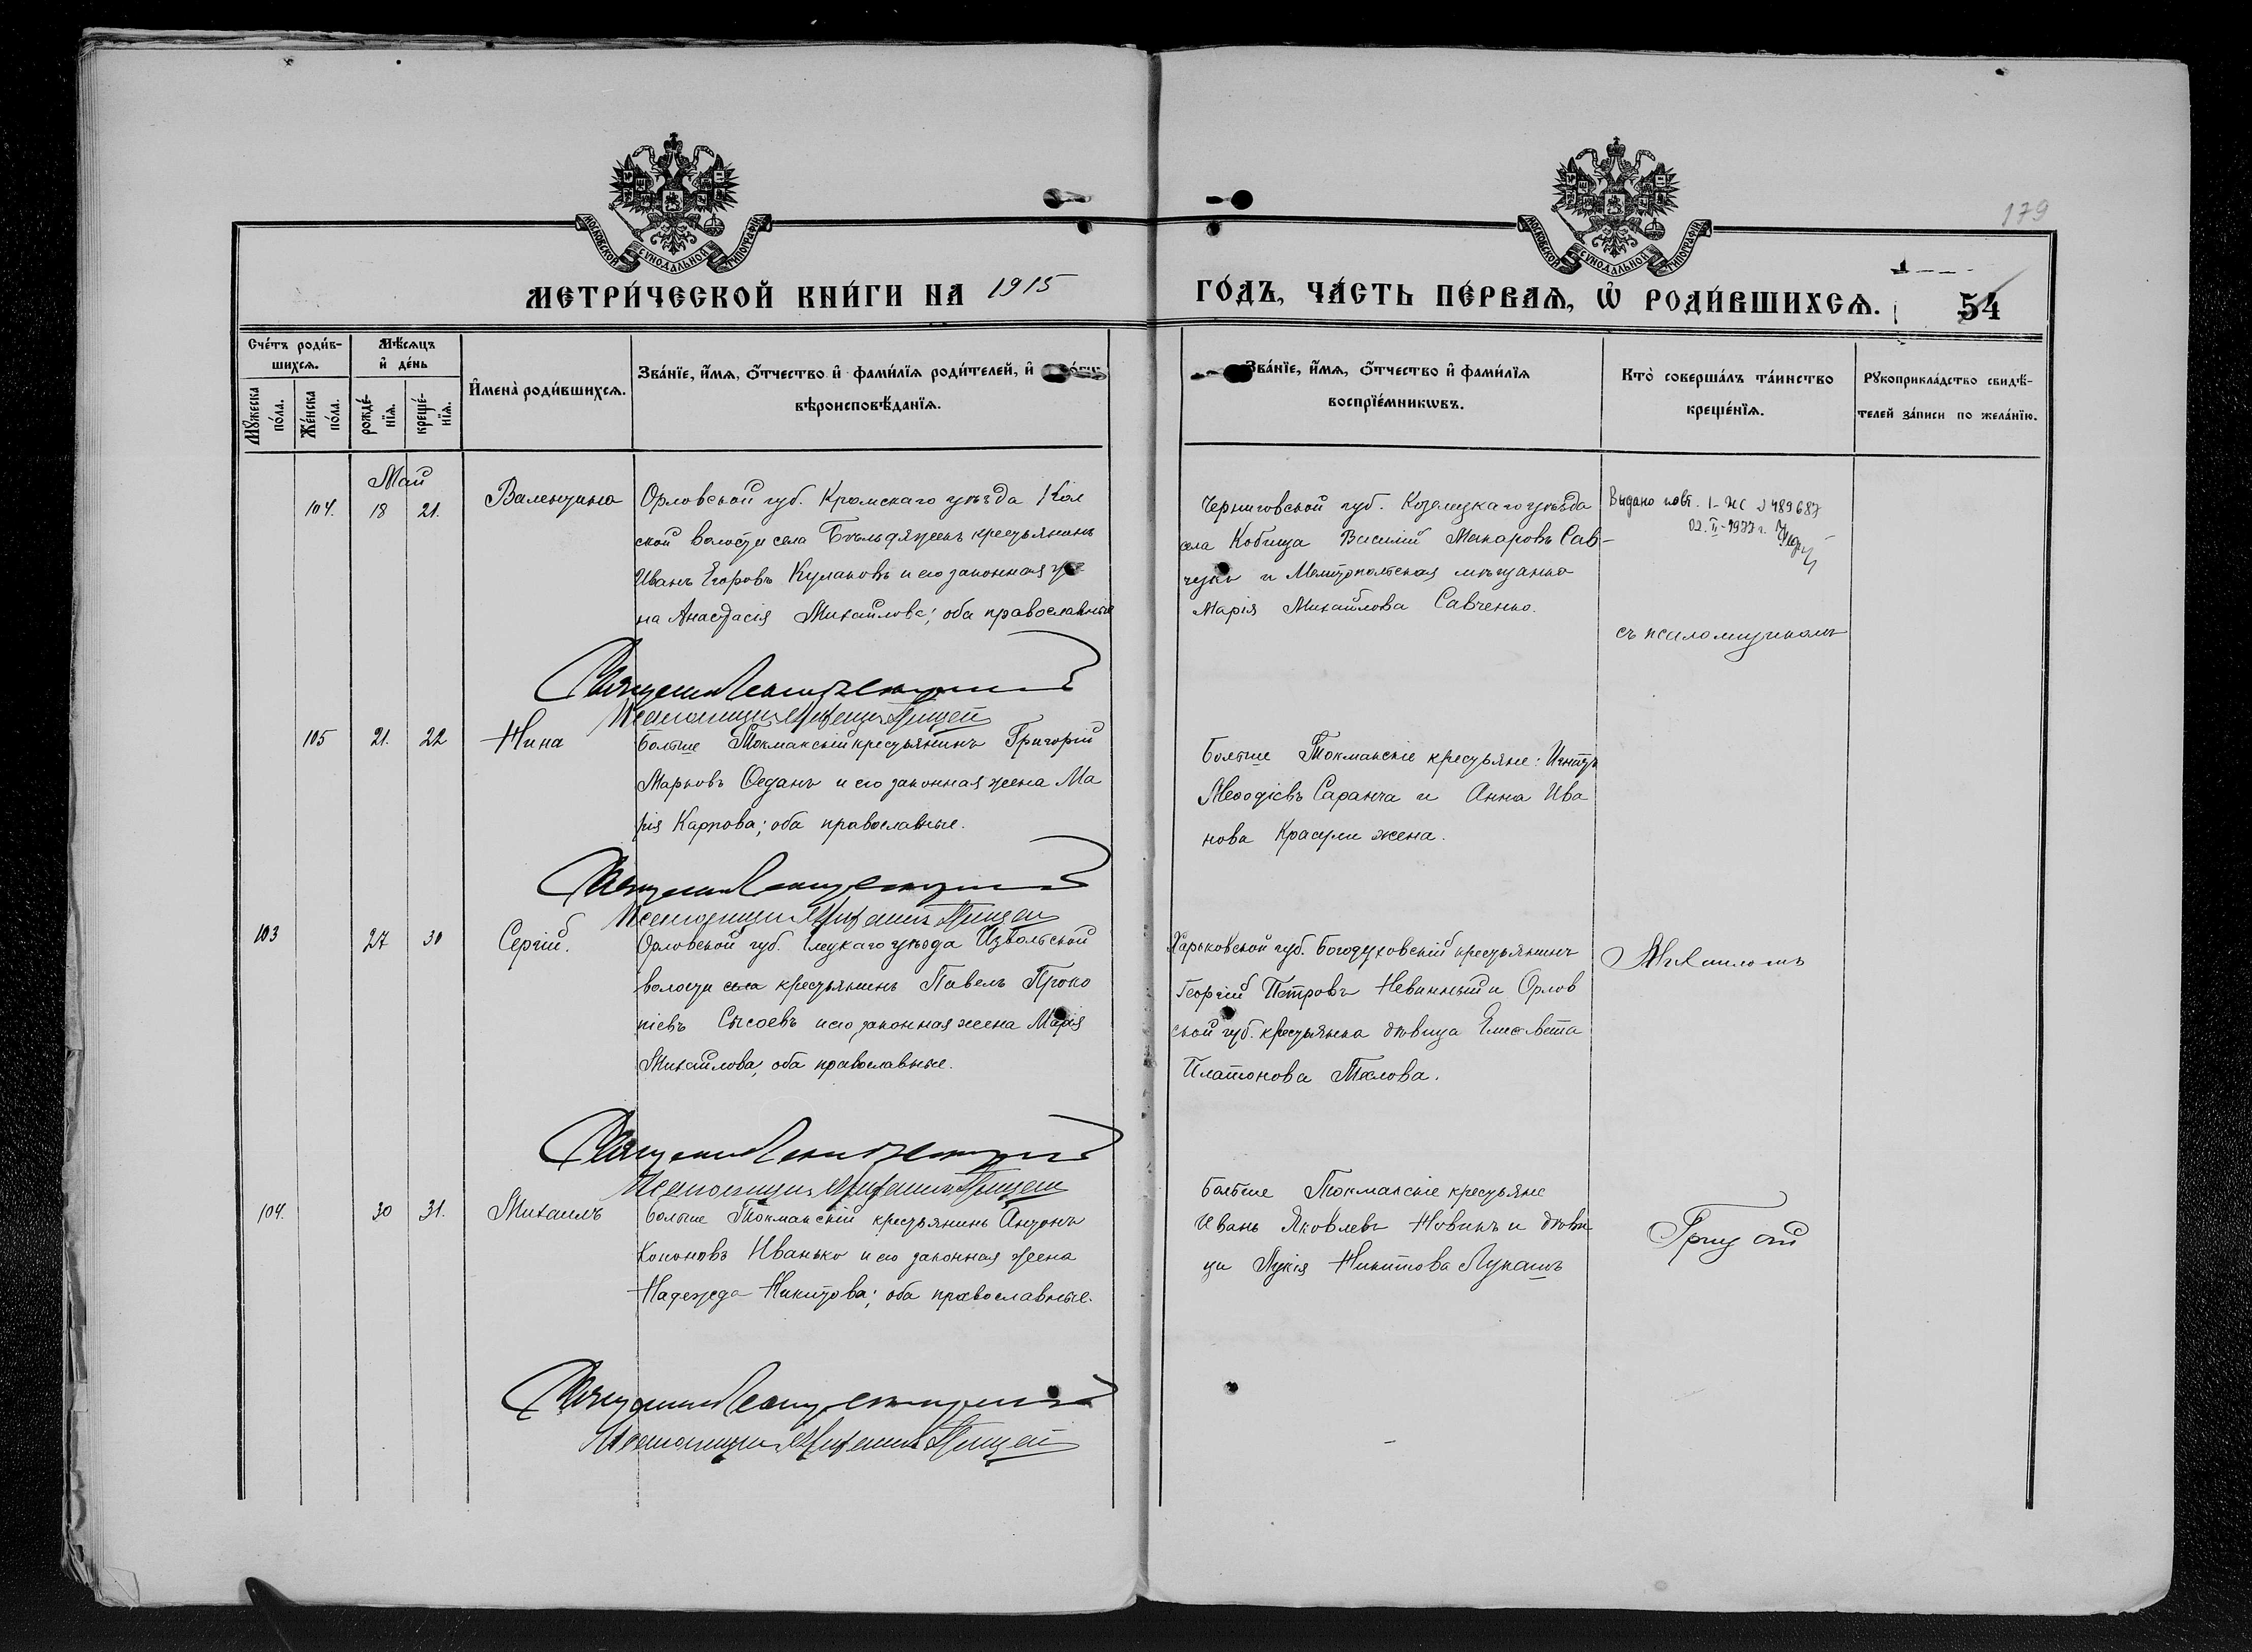 179
МОСКОВСКОЙ СѴНОДАЛЬНОЙ ТИПОГРАФІИ
МОСКОВСКОЙ СѴНОДАЛЬНОЙ ТИПОГРАФІИ
МЕТРИ́ЧЕСКОЙ КНИ́ГИ НА 1915
ГО́ДЪ, ЧА́СТЬ ПЕ́РВАѦ, Ѡ҆ РОДИ́ВШИХСѦ. 54
Сче́тъ роди́в-
шихсѧ.
Мꙋ́жеска
по́ла.
Же́нска
по́ла.
Мѣ́сѧцъ
и҆ де́нь
рожде́-
нїѧ.
креще́-
нїѧ.
И҆мена̀ роди́вшихсѧ.
Зва́нїе, и҆́мѧ, ѻ҆́тчество и҆ фами́лїѧ роди́телей, и҆
вѣроисповѣ́данїѧ.
Зва́нїе, и҆́мѧ, ѻ҆́тчество и҆ фами́лїѧ
воспрїе́мникѡвъ.
Кто̀ соверша́лъ та́инство
креще́нїѧ.
Рꙋкоприкла́дство свидѣ́-
телей за́писи по жела́нїю.
Май
104. 18 21. Валентина
Орловской губ. Кромскаго уѣзда Кол
ской волости села крестьянинъ
Иванъ Егоровъ Кулаковъ и его законная же
на Анастасія Михайлова; оба православные
Черниговской губ. Козелецкаго уѣзда
села Кобища Василій Макаровъ Сав-
ченко и Мелитопольская мѣщанка
Марія Михайлова Савченко.
Выдано повт. I-ЖС № 489687
02.II-1977 г.
съ псаломщикомъ
Священникъ
Псаломщикъ
105 21. 22 Нина
Больше Токмакскій крестьянинъ Григорій
Марковъ и его законная жена Ма
рія Карпова; оба православные.
Больше Токмакскіе крестьяне: Игнатъ
Меѳодіевъ Саранча и Анна Ива
нова Красули жена.
Священникъ
Псаломщикъ
103 27 30 Сергій.
Орловской губ. Елецкаго уѣзда Извольской
волости села крестьянинъ Павелъ Проко
піевъ Сысоевъ и его законная жена Марія
Михайлова, оба православные.
Харьковской губ. Богодуховскій крестьянинъ
Георгій Петровъ Невинный и Орлов
ской губ. крестьянка дѣвица Елисавета
Платонова
Михаиломъ
Священникъ
Псаломщикъ
104. 30 31. Михаилъ
Больше Токмакскій крестьянинъ Антонъ
Кононовъ Иванько и его законная жена
Надежда Никитова; оба православные.
Больше Токмакскіе крестьяне
Иванъ Яковлевъ Новикъ и дѣви
ца Лукія Никитова Лукашъ
Священникъ
Псаломщикъ